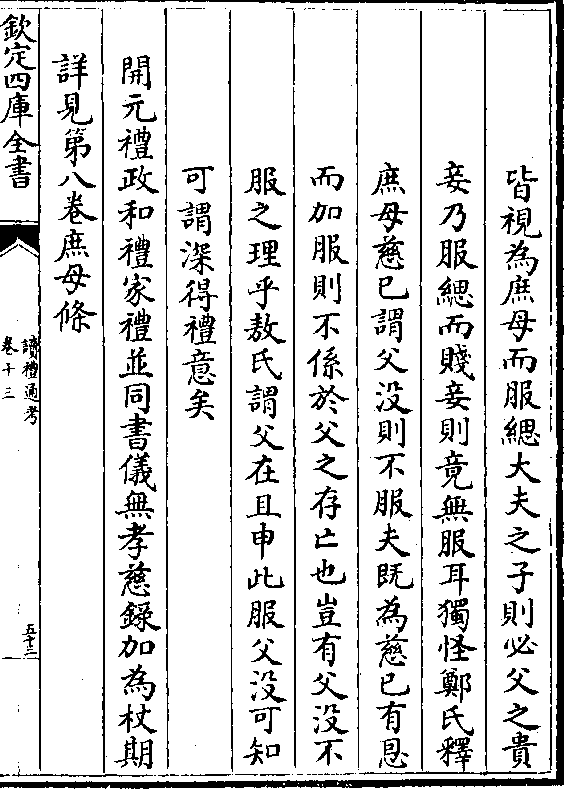 皆視為庶母而服緦大夫之子則必父之貴
妾乃服緦而賤妾則竟無服耳獨怪鄭氏釋
庶母慈已謂父没則不服夫既為慈已有恩
而加服則不係於父之存亡也豈有父没不
服之理乎敖氏謂父在且申此服父没可知
可謂深得禮意矣
開元禮政和禮家禮並同書儀無孝慈錄加為杖期
詳見第八卷庶母條
欽定四庫全書
讀禮通考
卷十三
五十三